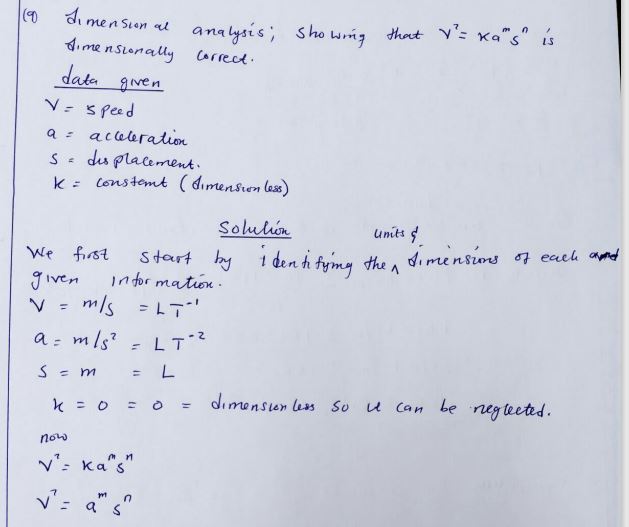 (9) dimensional analysis; showing that V² = Ka^m s^n is
dimensionally correct.
data given
V = speed
a = acceleration
s = displacement.
k = constant (dimensionless)
Solution
units &
We first start by identifying the ^ dimensions of each and
given information.
V = m/s = LT⁻¹
a = m/s² = LT⁻²
S = m = L
k = 0 = 0 = dimensionless so it can be neglected.
now
V² = Ka^m s^n
V² = a^m s^n